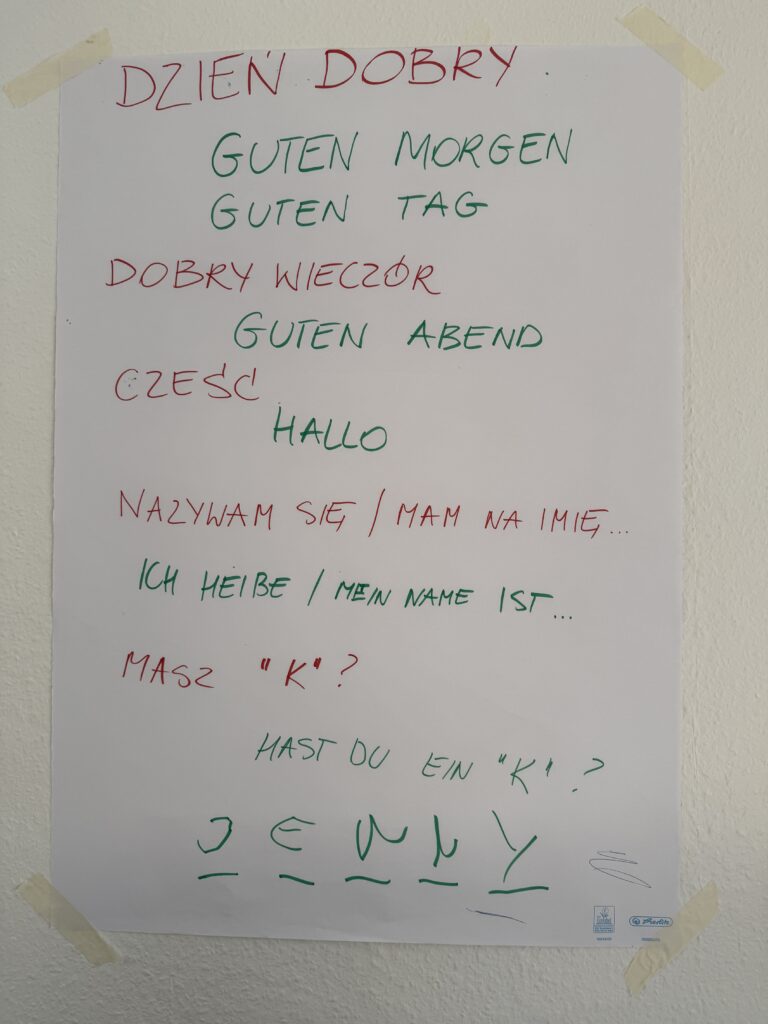 DZIEŃ DOBRY
GUTEN MORGEN
GUTEN TAG
DOBRY WIECZÓR
GUTEN ABEND
CZEŚĆ
HALLO
NAZYWAM SIĘ / MAM NA IMIĘ...
ICH HEIßE / MEIN NAME IST...
MASZ "K"?
HAST DU EIN "K"?
JENNY